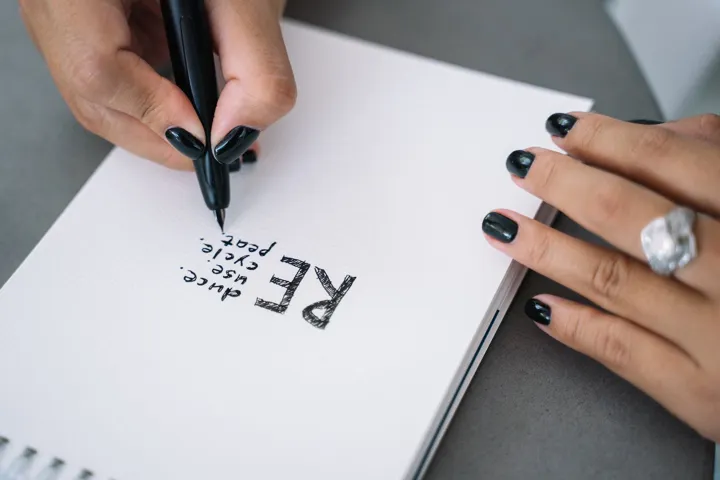 RE
duce.
use.
cycle.
peat.